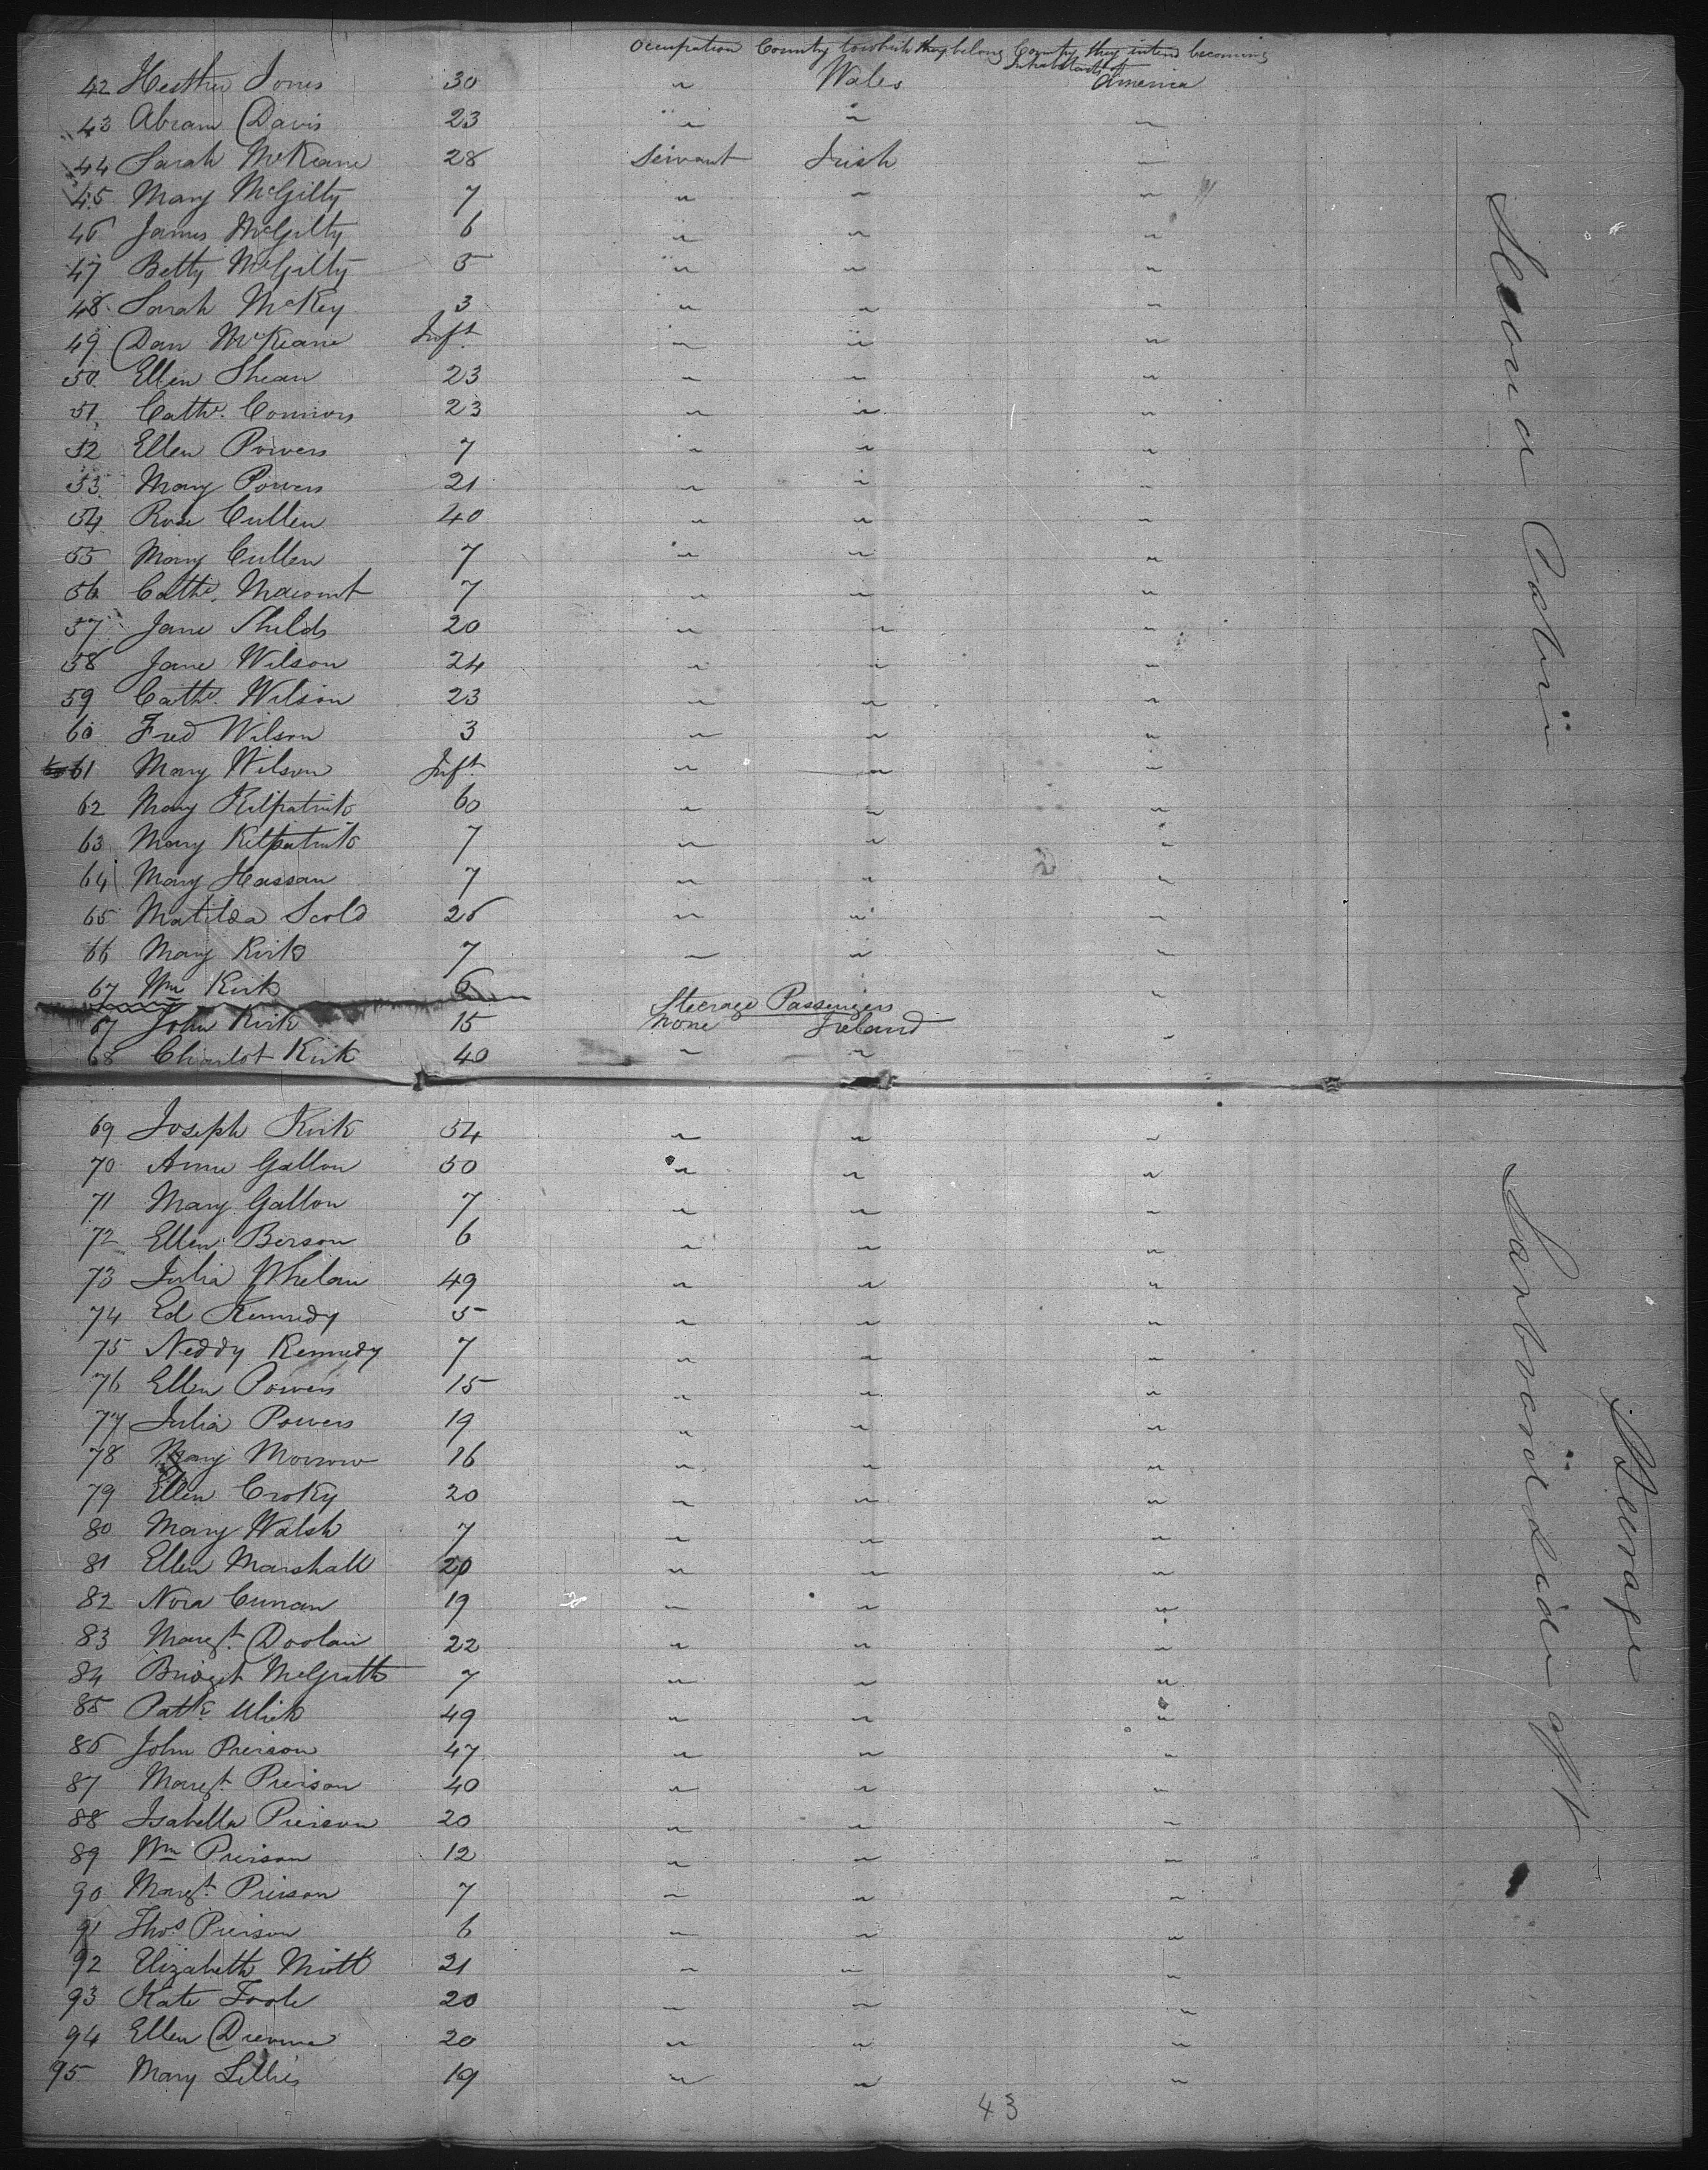 Occupation Country to which they belong Country they intend becoming
Inhabitants of
42 Hesther Jones 30 " Wales America
43 Abram Davis 23 " " "
44 Sarah McKeane 28 Servant Irish "
45 Mary McGilty 7 " " "
46 James McGilty 6 " " "
47 Betty McGilty 5 " " "
48 Sarah McKey 3 " " "
49 Dan McKeane Inft " " "
50 Ellen Shean 23 " " "
51 Cathe. Connors 23 " " "
52 Ellen Powers 7 " " "
53 Mary Powers 21 " " "
54 Rose Cullen 40 " " "
55 Mary Cullen 7 " " "
56 Cathe. 7 " " "
57 Jane Shilds 20 " " "
58 Jane Wilson 24 " " "
59 Cathe. Wilson 23 " " "
60 Fred Wilson 3 " " "
61 Mary Wilson Inft " " "
62 Mary Kilpatrick 60 " " "
63 Mary Kilpatrick 7 " " "
64 Mary Hassan 7 " " "
65 Matilda Scold 26 " " "
66 Mary Kirk 7 " " "
67 Wm Kirk 6 "
Steerage Passengers
67 John Kirk 15 None Ireland "
68 Charlot Kirk 40 " "
69 Joseph Kirk 54 " " "
70 Anne Gallon 50 " " "
71 Mary Gallon 7 " " "
72 Ellen Berson 6 " " "
73 Julia Whelan 49 " " "
74 Ed Kennedy 5 " " "
75 Neddy Kennedy 7 " " "
76 Ellen Powers 15 " " "
77 Julia Powers 19 " " "
78 Mary Morrow 16 " " "
79 Ellen Croky 20 " " "
80 Mary Walsh 7 " " "
81 Ellen Marshall 20 " " "
82 Nora Curran 19 " " "
83 Margt. Doolan 22 " " "
84 Bridget McGrath 7 " " "
85 Patk Ulick 49 " " "
86 John Preison 47 " " "
87 Margt. Preison 40 " " "
88 Isabella Preison 20 " " "
89 Wm Preison 12 " " "
90 Margt. Preison 7 " " "
91 Thos Preison 6 " " "
92 Elizabeth Miott 21 " " "
93 Kate Foole 20 " " "
94 Ellen 20 " " "
95 Mary Lillis 19 " " "
43
Second Cabin
Larboard side aft
Steerage